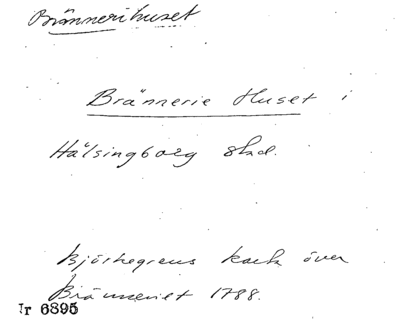 Brännerihuset
Brännerie Huset i
Hälsingborg stad.
Björkegrens karta över
Bränneriet 1788.
Nr 6895